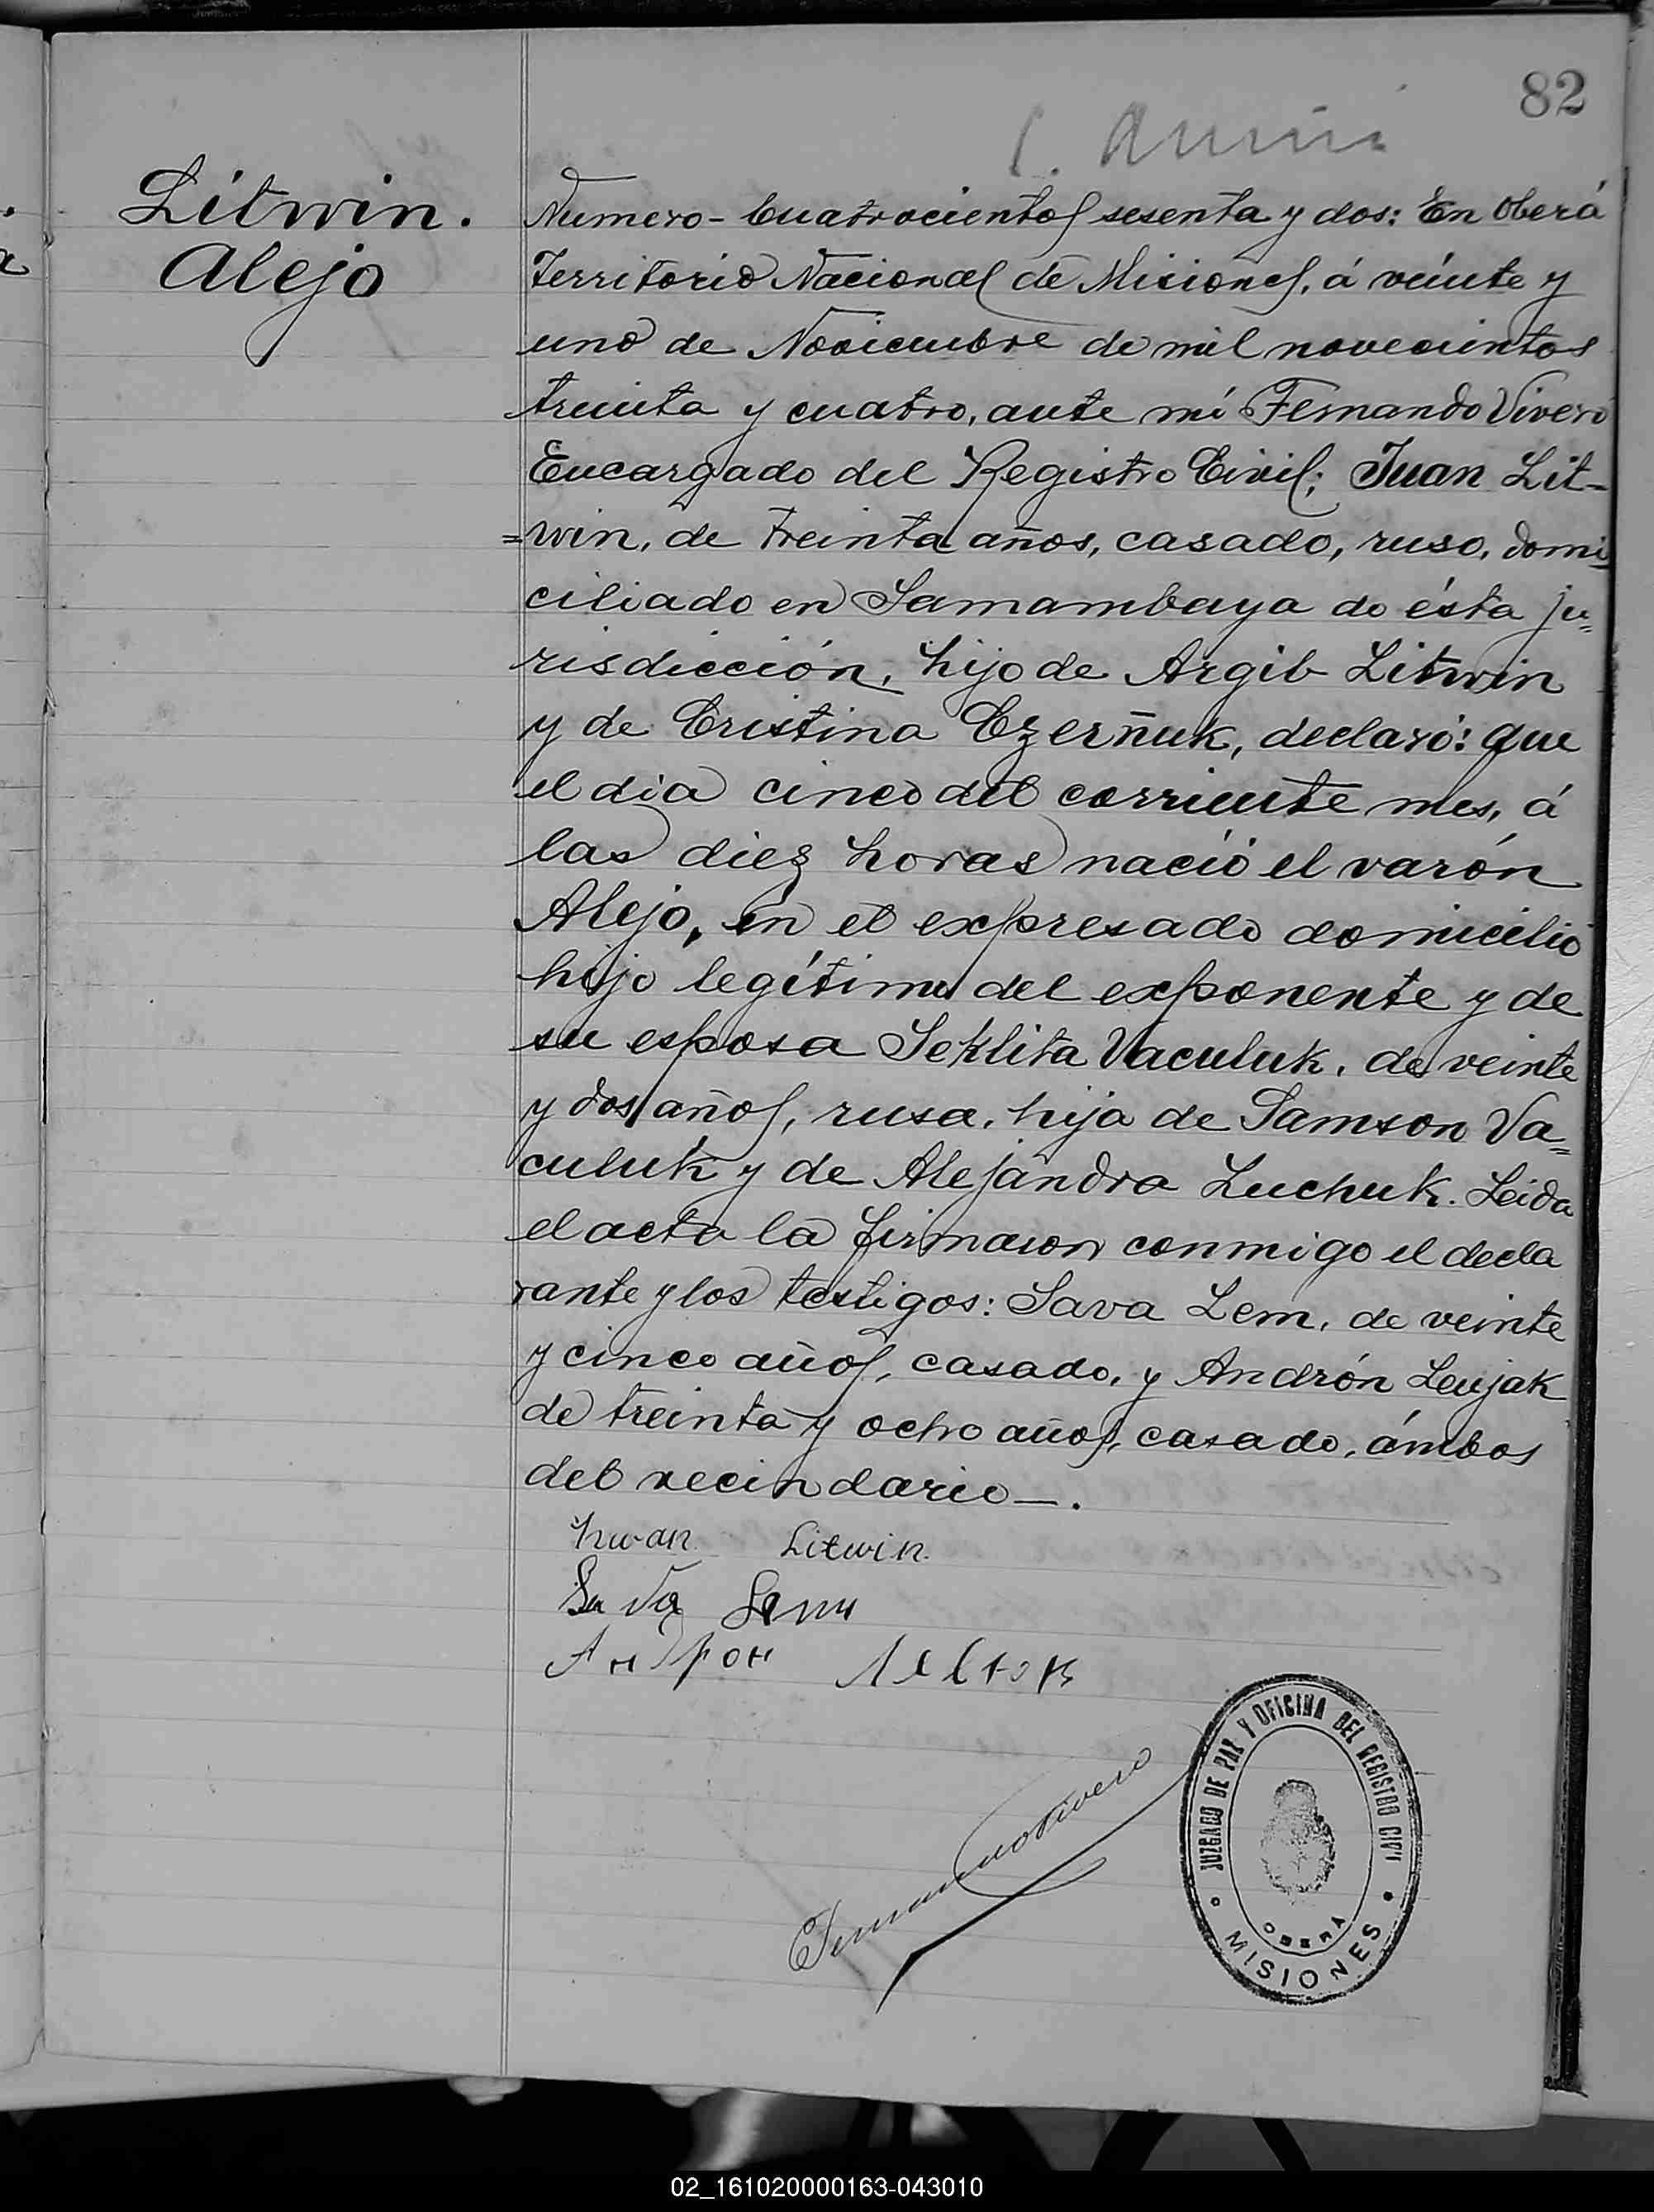 82
Litwin.
Alejo
Numero - Cuatrocientos sesenta y dos: En Oberá
Territorio Nacional de Misiones, á veinte y
uno de Noviembre de mil novecientos
treinta y cuatro, ante mí Fernando Vivero
Encargado del Registro Civil; Juan Lit-
=win, de treinta años, casado, ruso, domi
ciliado en Samambaya de ésta ju=
risdicción, hijo de Argib Litwin
y de Cristina Czerñuk, declaró: que
el dia cinco del corriente mes, á
las diez horas nació el varón
Alejo, en el expresado domicilio
hijo legítimo del exponente y de
su esposa Seklita Vaculuk, de veinte
y dos años, rusa, hija de Samson Va=
culuk y de Alejandra Luchuk. Leida
el acta la firmaron conmigo el decla
rante y los testigos: Sava Lem, de veinte
y cinco años, casado, y Andrón Leujak
de treinta y ocho años, casado, ámbos
del vecindario—.
Litwin.
Андрон
Fernando Vivero
JUZGADO DE PAZ Y OFICINA DEL REGISTRO CIVIL
OBERA
MISIONES
02_161020000163-043010